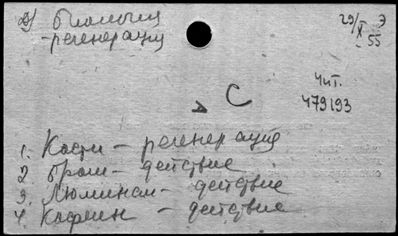 Биология
- регенерация
29/X - 55 Э
С
Чит.
479193
1. Кости - регенерация
2 Бром - действие
3. Люминал - действие
4. Кофеин - действие